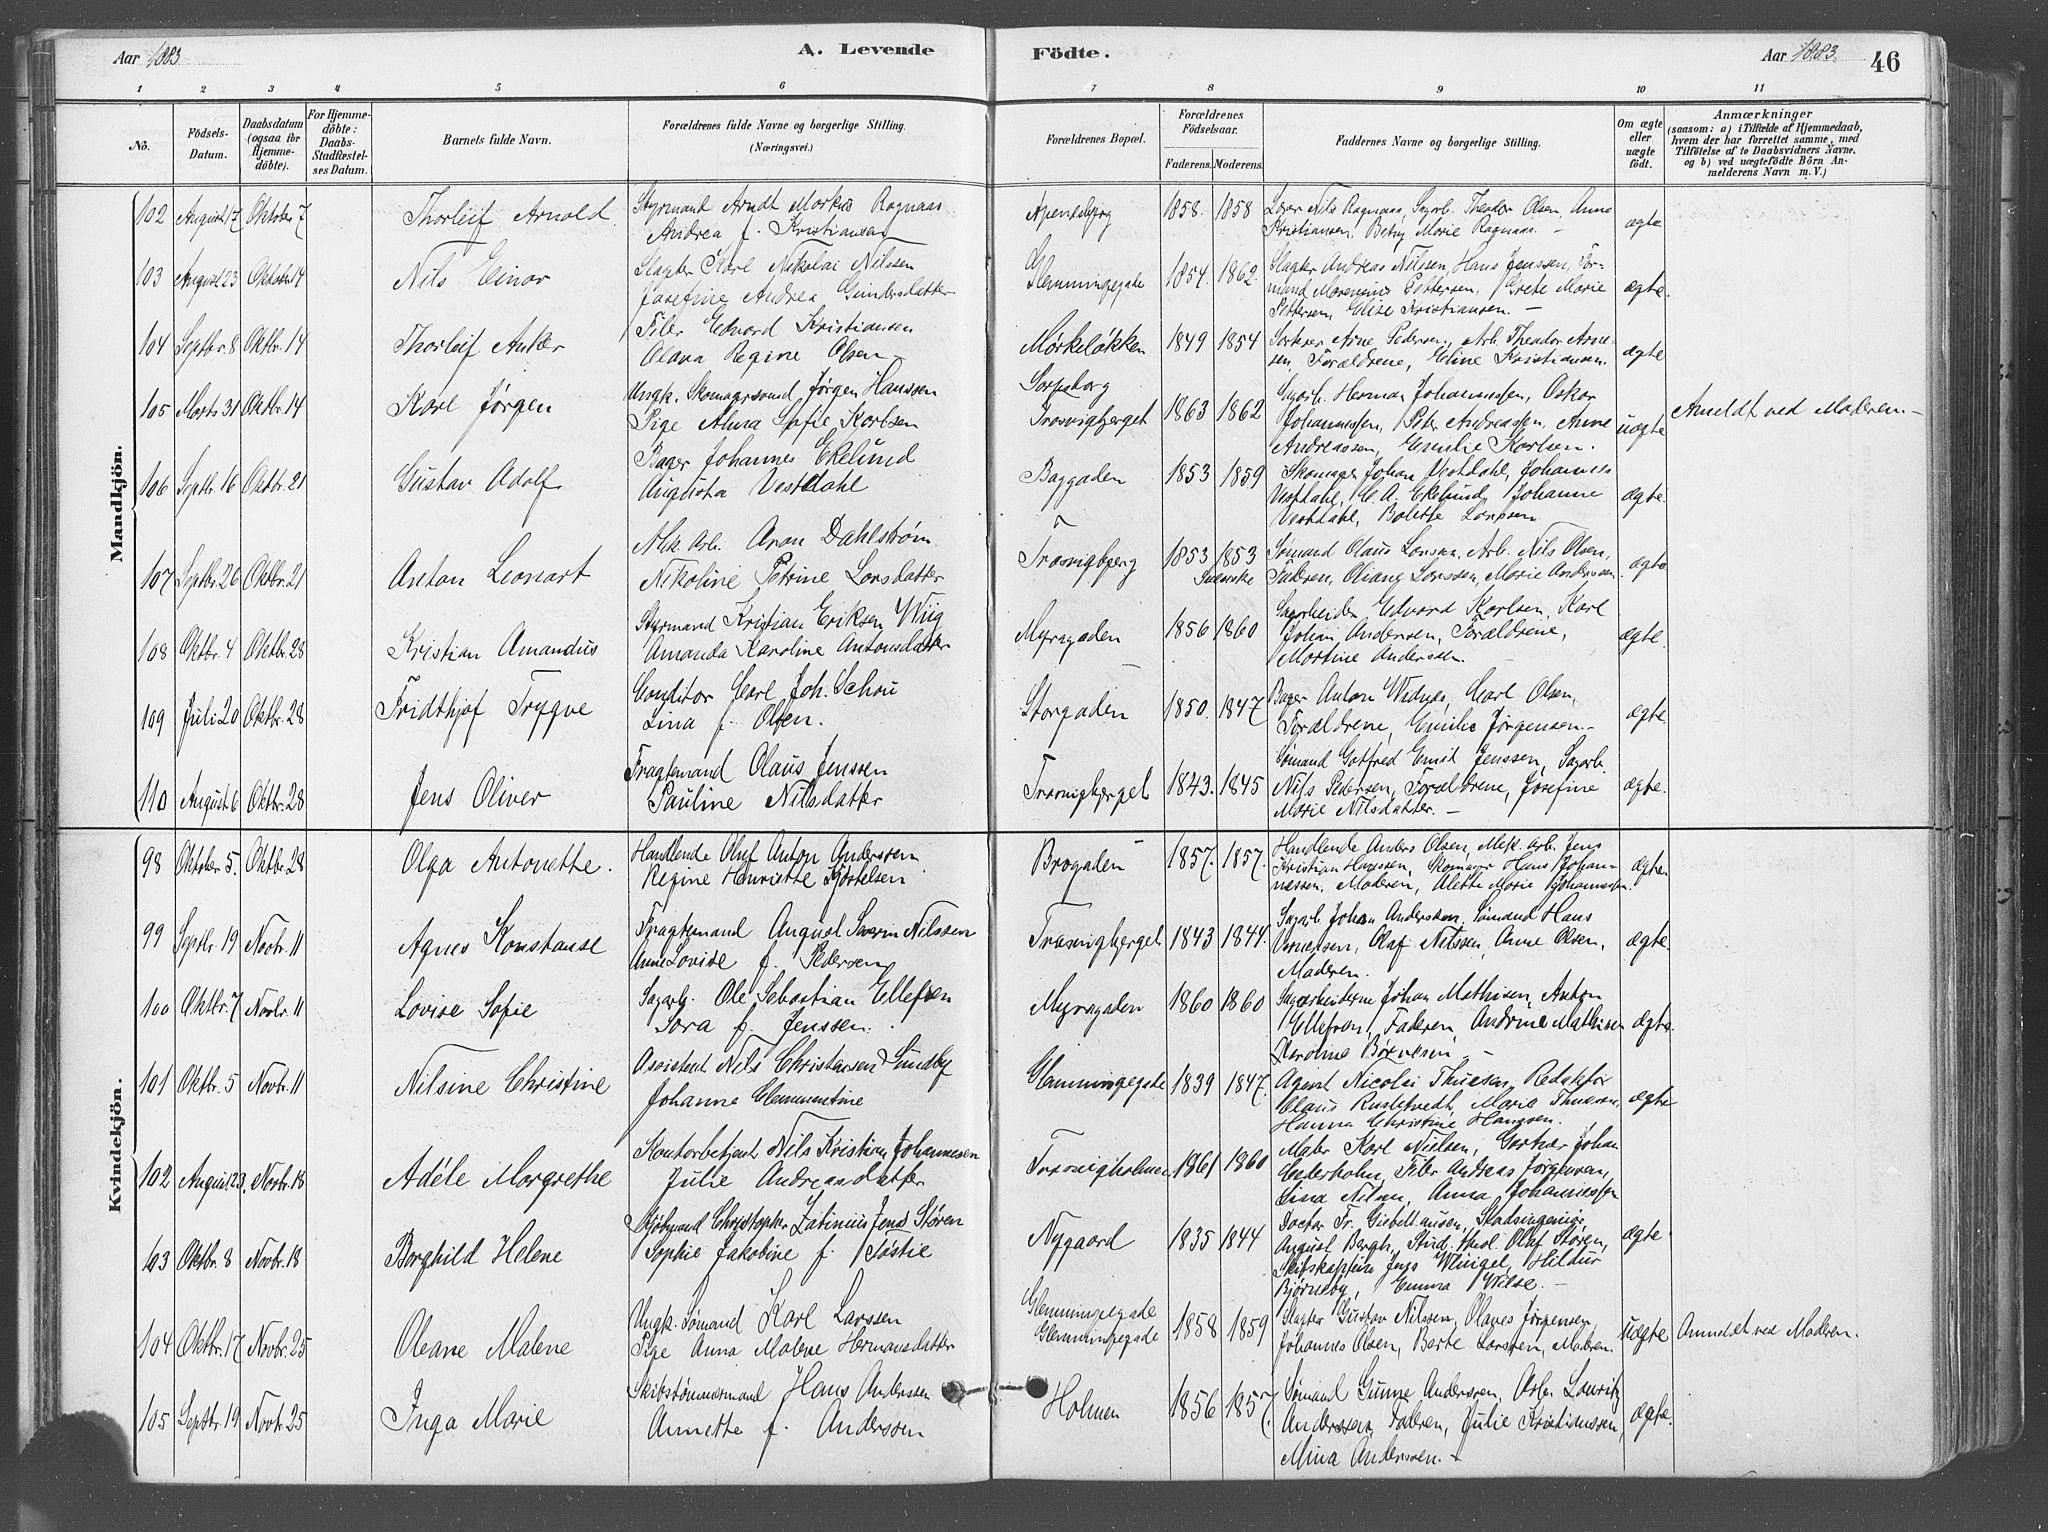 Aar 1883. A. Levende Fødte. Aar 1883. 46
1 2 3 4 5 6 7 8 9 10 11
No. Fødsels-Datum. Daabsdatum (ogsaa for Hjemmedöbte). For Hjemmedöbte: Daabs-Stadfæstelses Datum. Barnets fulde Navn. Forældrenes fulde Navne og borgerlige Stilling. (Næringsvei.) Forældrenes Bopæl. Forældrenes Födselsaar. Faderens. Moderens. Faddernes Navne og borgerlige Stilling. Om ægte eller uægte födt. Anmærkninger (saasom: a) i Tilfælde af Hjemmedaab, hvem der har forrettet samme, med Tilföielse af to Daabsvidners Navne, og b) ved uægtefödte Börn Anmelderens Navn m. V.)
Mandkjön.
102 August 17 Oktober 7 Thorleif Arnold Styrmand Arndt Markus Ragnaas
Andrea f. Kristiansen Apenesbjerg 1858. 1858 Loser Nils Ragnaas, Sagarb. Theodor Olsen, Anna
Kristiansen, Betsy Marie Ragnaas. – ægte
103 August 23 Oktober 14 Nils Einar Slagter Karl Nikolai Nilssen
Josefine Andrea Gundersdatter Glemmingegade 1854. 1862. Slagter Andreas Nilssen, Hans Jenssen, For-
mand Marensius Pettersen, Grete Marie
Pettersen, Elise Kristiansen. – ægte.
104 Septbr. 8 Oktbr. 14 Thorleif Anker Filer Edvard Kristiansen
Olava Regine Olsen Mørkeløkken 1849 1854 Sorterer Arne Pedersen, Arb. Theodor Arne-
sen, Forældrene, Eline Kristiansen. ægte
105 Marts 31 Oktbr. 14 Karl Jørgen Ungk. Skomagersvend Jørgen Hanssen
Pige Alma Sofie Karlsen Sarpsborg
Trosvigbjerget 1863 1862 Sagarb. Herman Johannessen, Oskar
Johannessen, Peter Andreassen, Anne
Andreassen, Emilie Karlsen. uægte Anmeldt ved Moderen –
106 Septbr. 16 Oktbr. 21 Gustav Adolf Bager Johannes Ekelund
Augusta Vestdahl Baggaden 1853 1859 Skomager Johan Vestdahl, Johannes
Vestdahl, C. A. Ekelund, Johanne
Vestdahl, Bolette Larssen ægte
107 Septbr. 26 Oktbr. 21 Anton Leonart Mek. arb. Aron Dahlstrøm
Nikoline Petrine Larsdatter Trosvigbjerg 1853 1853
Svenske Sømand Olaus Larssen, Arb. Nils Olsen,
Faderen, Oliane Larssen, Marie Anderssen. ægte
108 Oktbr. 4 Oktbr. 28 Kristian Amandus Styrmand Kristian Eriksen Wiig
Amanda Karoline Antonsdatter Myragaden 1856 1860 Sagarbeider Edvard Karlsen, Karl
Johan Andersen, Forældrene,
Martine Anderssen. ægte.
109 Juli 20 Oktbr. 28 Fridthjof Trygve Conditor Carl Joh. Schou
Lina f. Olsen. Storgaden 1850. 1847 Bager Anton Widnes, Carl Olsen,
Forældrene, Emilie Jørgensen – ægte.
110 August 6 Oktbr. 28 Jens Oliver Fragtemand Olaus Jenssen
Pauline Nilsdatter Trosvigbjerget 1843. 1845 Sømand Gotfred Emil Jenssen, Sagarb.
Nils Pedersen, Forældrene, Josefine
Marie Nilsdatter. – ægte.
Kvindekjön.
98 Oktober 5. Oktbr. 28 Olga Antonette. Handlende Oluf Anton Anderssen
Regine Henriette Kjostelsen Brogaden 1857. 1857. Handlende Anders Olsen, Mek. Arb. Jens
Kristian Hanssen, Skomager Hans Johan-
nessen, Moderen, Alette Marie Johannessen. ægte
99 Septbr. 19 Novbr. 11 Agnes Konstanse Fragtemand August Severin Nilssen
Anne Lovise f. Pedersen Trosvigbjerget 1843 1844. Sagarb. Johan Anderssen, Sømand Hans
Olaf Nilssen, Anne Olsen,
Moderen. ægte
100 Oktbr. 7 Novbr. 11 Lovise Sofie Sagarb. Ole Sebastian Ellefsen
Sara f. Jenssen. Myragaden 1860 1860 Sagarbeiderne Johan Mathisen, Anton
Ellefsen, Faderen, Andrine Mathisen
Karoline – ægte.
101 Oktbr. 5 Novbr. 11 Nilsine Christine Assistent Nils Christensen Sundby
Johanne Clementine Glemmingegade 1839 1847. Agent Nicolai Thuesen, Redaktør
Olaus Marie Thuesen,
Hanna Christine Hanssen. ægte
102 August 23. Novbr. 18 Adéle Margrethe Kontorbetjent Nils Kristian Johannesen
Julie Andreasdatter Trosvigholmen 1861 1860 Maler Karl Nielsen, Gartner Johan
Cederholm, Filer Andreas Jørgensen,
Lina Nilsen, Anna Johannessen ægte
103 Oktbr. 8 Novbr. 18 Borghild Helene Christopher Zatinius Jens Støren
Sophie Jakobine f. Søstie Nygaard 1835 1844 Doctor Fr. Stadsingeniør
August Bergh, Stud. theol. Olaf Støren,
Skibskaptein Jens Wingel, Hildur
Bjørneby, Emma Wilse. – ægte.
104 Oktbr. 17 Novbr. 25 Oleane Malene Ungk. Sømand Karl Larssen
Pige Anna Malene Hermansdatter Glemmingegade
Glemmingegade 1858 1859 Slagter Gustav Nilssen, Olaves Jørgensen,
Johannes Olsen, Berte Larsen, Moderen. uægte Anmeldt ved Moderen.
105 Septbr. 19 Novbr. 25 Inga Marie Skibstømmermand Hans Anderssen
Annette f. Anderssen Holmen 1856 1857. Sømand Gunne Anderssen, Arb. Lauritz
Anderssen, Faderen, Julie Kristianssen,
Mina Anderssen. – ægte.